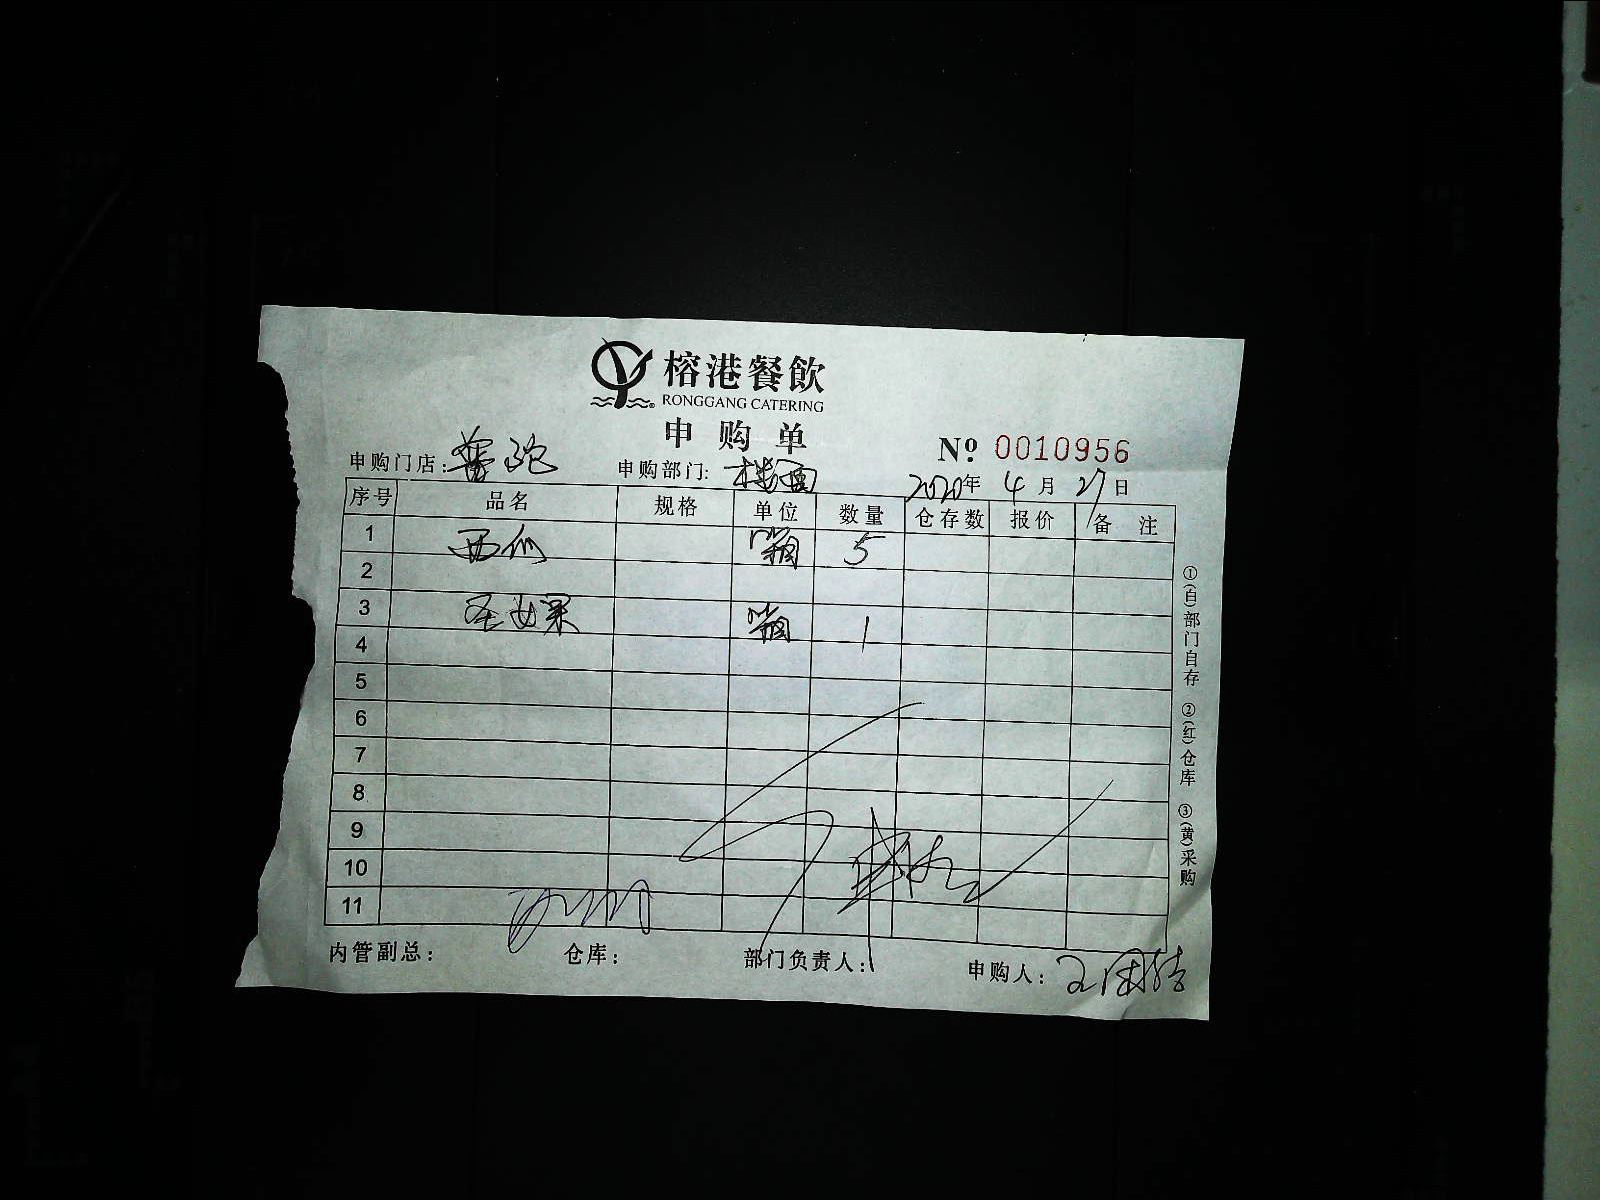 榕港餐飲
RONGGANG CATERING
申购单
Nº 0010956
申购门店: 申购部门: 楼面 2020年 4月 27日
序号 品名 规格 单位 数量 仓存数 报价 备注
1 西瓜 箱 5
2
3 圣女果 箱 1
4
5
6
7
8
9
10
11
内管副总: 仓库: 部门负责人: 申购人:
①(白)部门自存 ②(红)仓库 ③(黄)采购